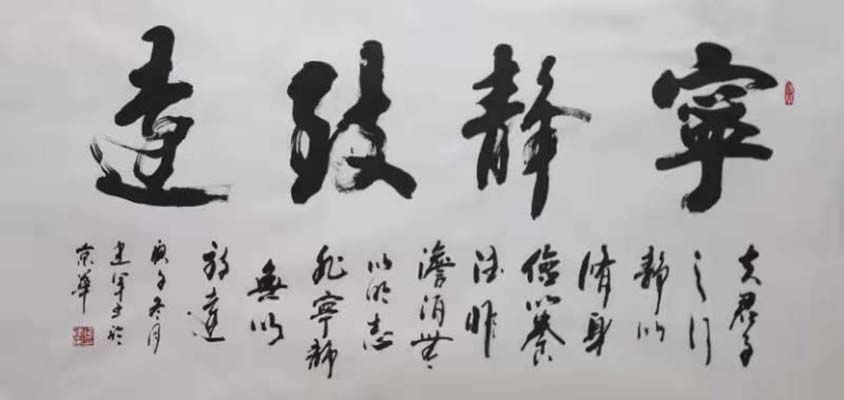 寧靜致遠
夫君子
之行
靜以
脩身
儉以養
德非
澹泊無
以明志
非寧靜
無以
致遠
庚子冬月
建军书於
京華